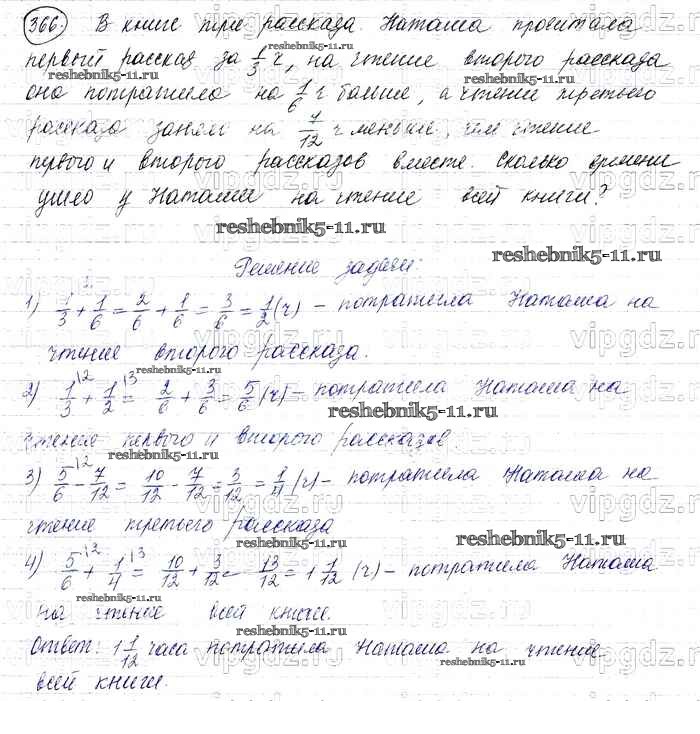 366. В книге три рассказа. Наташа прочитала
первый рассказ за 1/3 ч, на чтение второго рассказа
она потратила на 1/6 ч больше, а чтение третьего
рассказа заняло на 7/12 ч меньше, чем чтение
первого и второго рассказов вместе. Сколько времени
ушло у Наташи на чтение всей книги?
Решение задачи:
1) 1/3 + 1/6 = 2/6 + 1/6 = 3/6 = 1/2 (ч) – потратила Наташа на
чтение второго рассказа.
2) 1/3 + 1/2 = 2/6 + 3/6 = 5/6 (ч) – потратила Наташа на
чтение первого и второго рассказов
3) 5/6 - 7/12 = 10/12 - 7/12 = 3/12 = 1/4 (ч) – потратила Наташа на
чтение третьего рассказа
4) 5/6 + 1/4 = 10/12 + 3/12 = 13/12 = 1 1/12 (ч) – потратила Наташа
на чтение всей книги.
Ответ: 1 1/12 часа потратила Наташа на чтение
всей книги.
reshebnik5-11.ru
vipgdz.ru